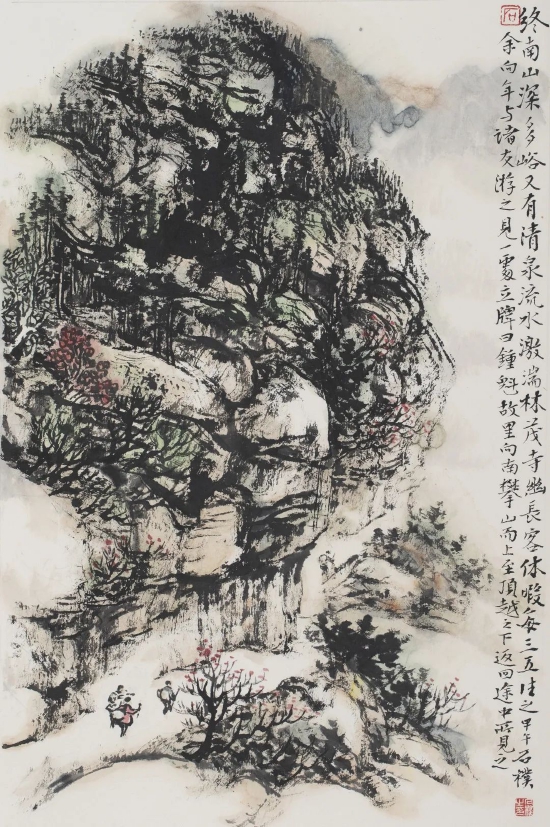 终南山深多峪又有清泉流水激湍林茂寺幽長客休暇每三五往之甲午石襆
余向年与诸友游之見一處立牌曰鍾魁故里向南攀山而上至頂越之下返回途中所見之